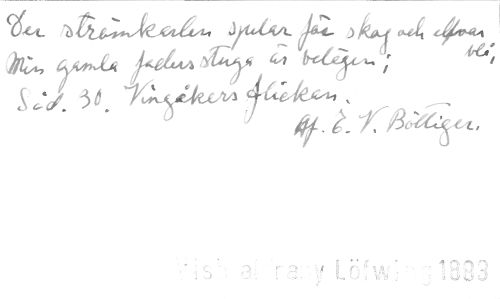 Der strömkarlen spelar för skog och elfvar blå,
Min gamla faders stuga är belägen;
Sid. 30. Vingåkers flickan.
Af. E. V. Böttiger.
Löfwing 1883